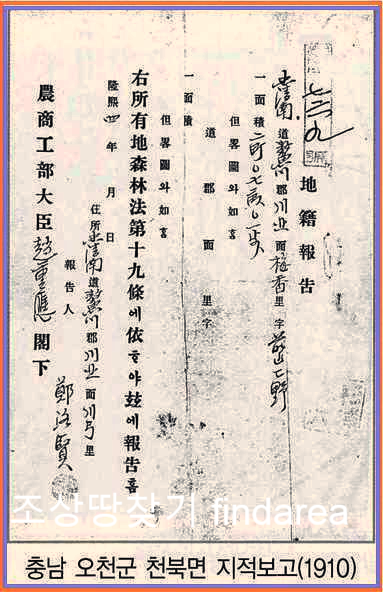 七三九 號
地籍報告
忠淸南道鰲川郡川北面梅香里字
一面積二町〇七畝〇
但畧圖와如喜
道郡面里字
一面積
但畧圖와如喜
右所有地森林法第十九條에依하야玆에報告홈
隆熙四年 月 日
住所忠淸南道鰲川郡川北面川弓里
報告人 鄭洛賢
農商工部大臣趙重應閣下
조상땅찾기 findarea
충남 오천군 천북면 지적보고(1910)